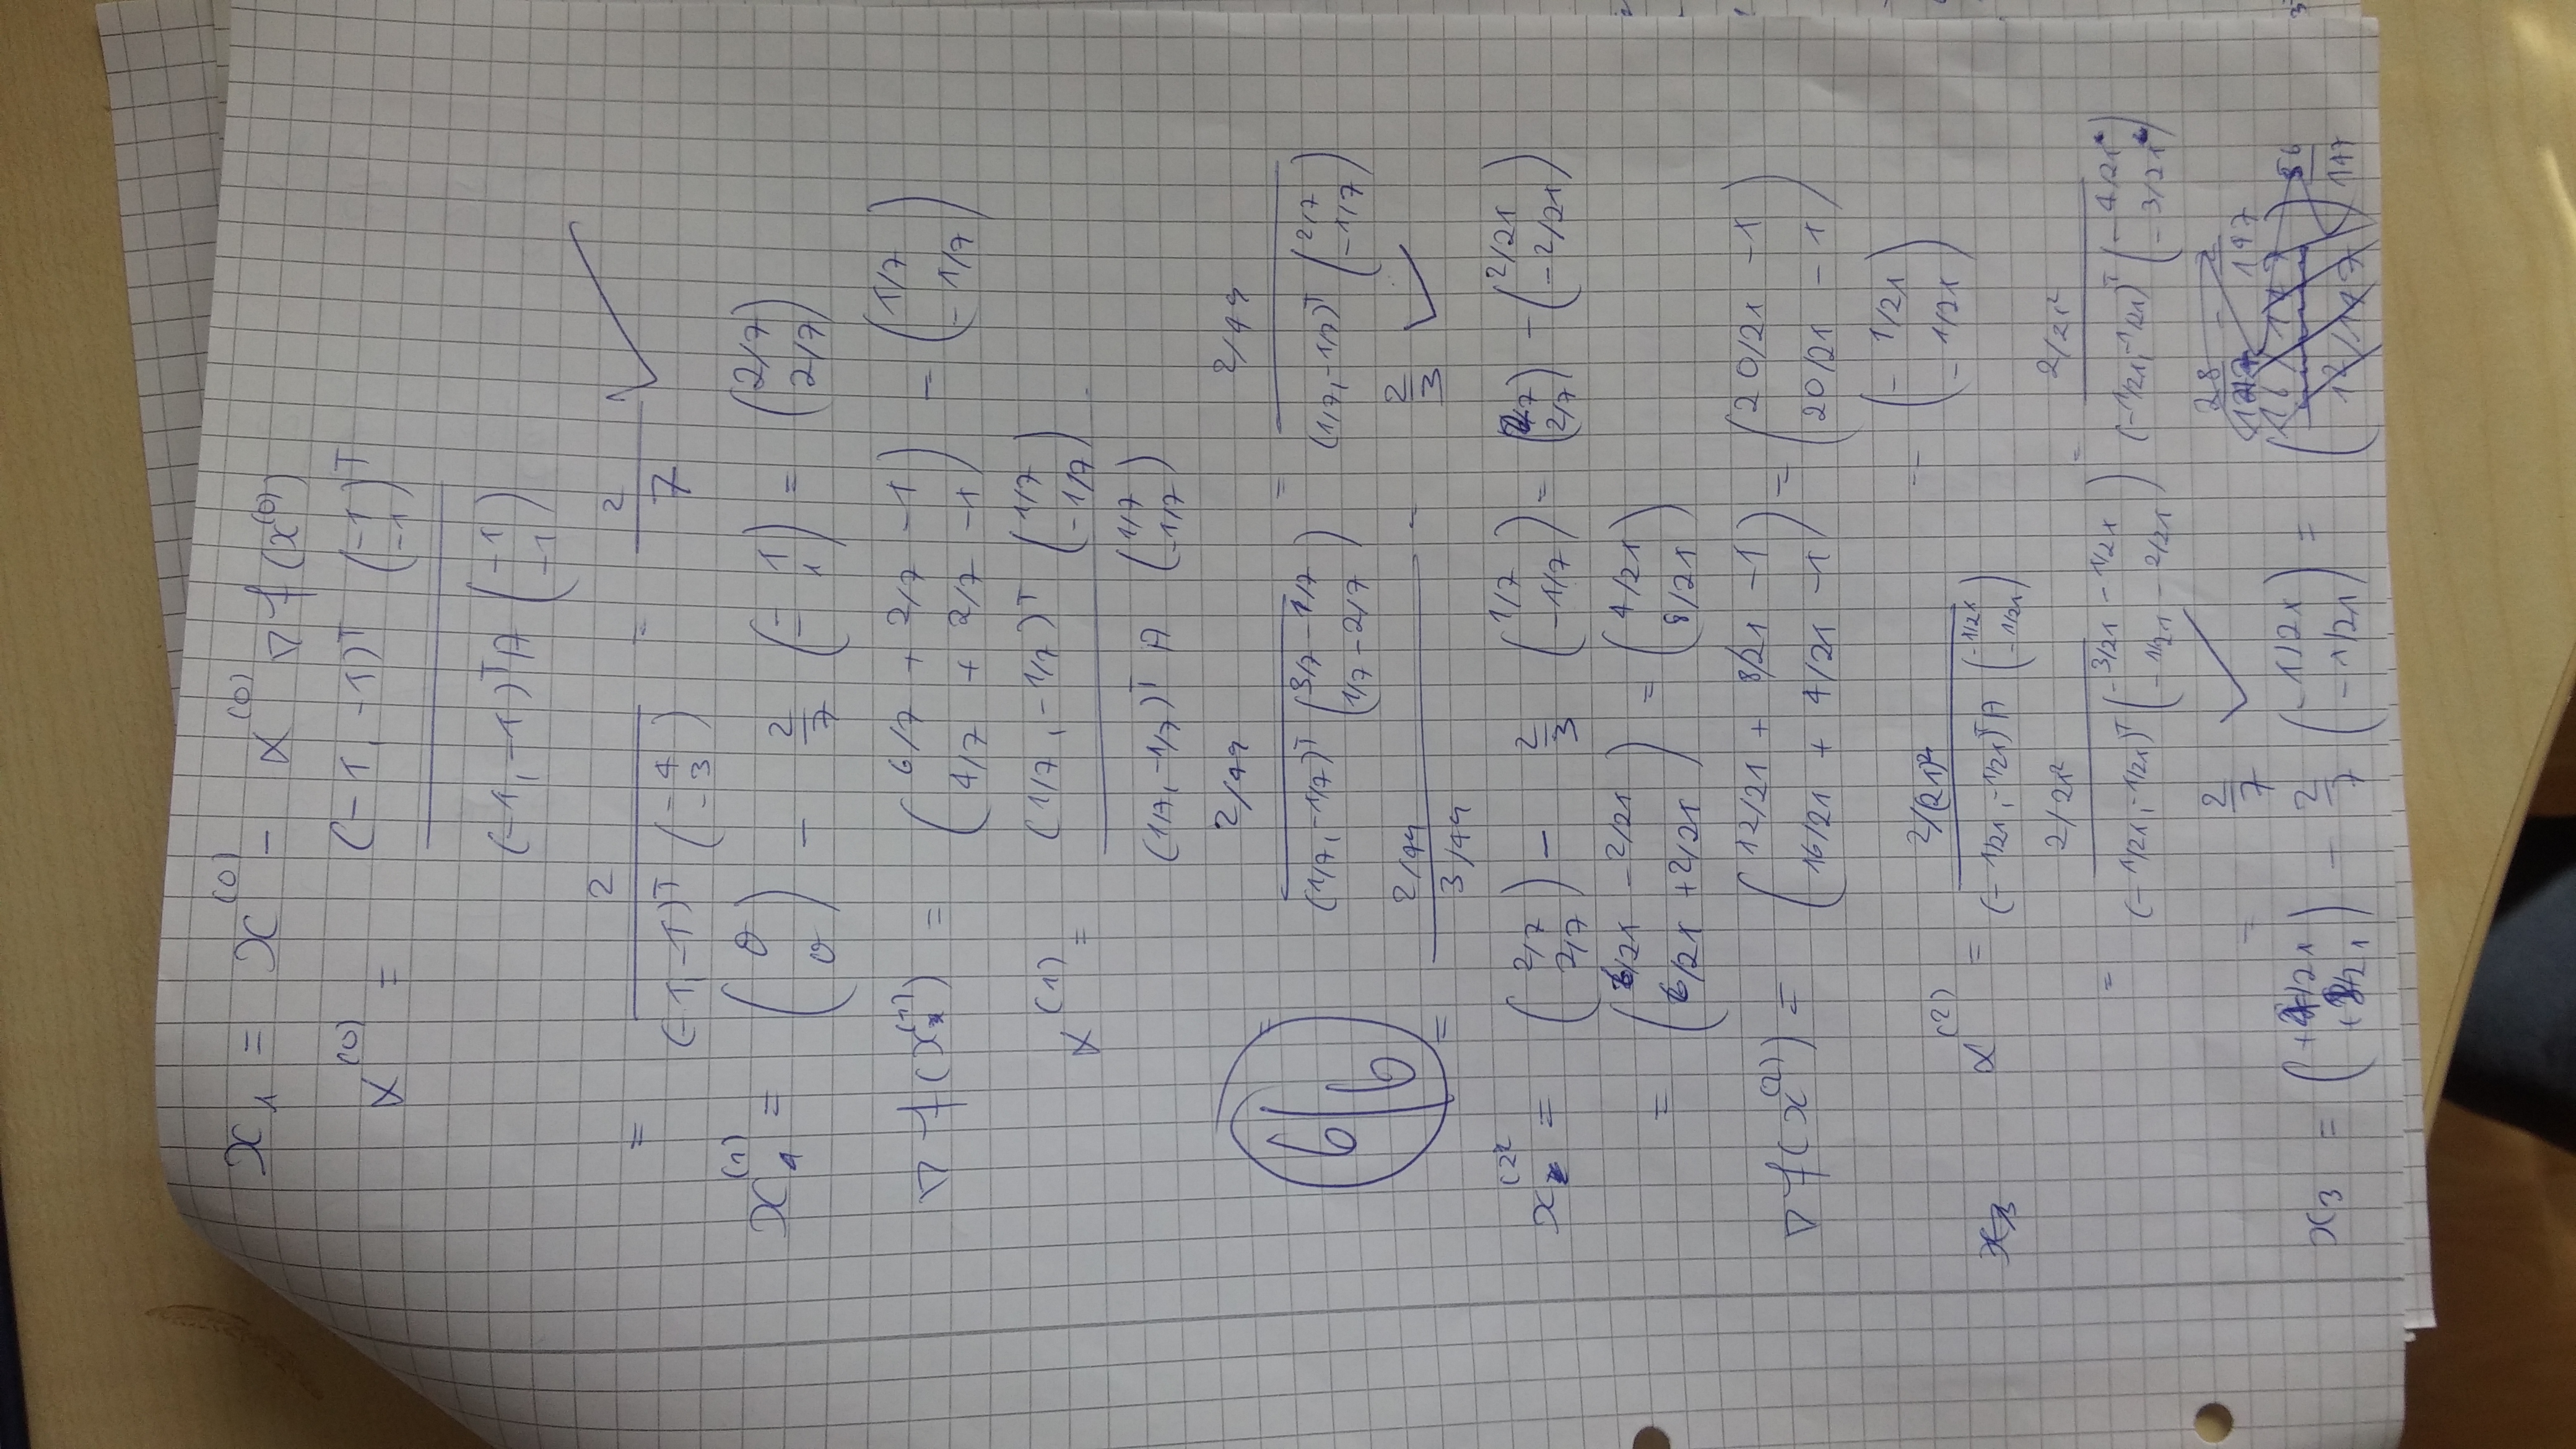 x₁ = x⁽⁰⁾ − α⁽⁰⁾ ∇f(x⁽⁰⁾)
α⁽⁰⁾ = (−1, −1)ᵀ (−1 −1)ᵀ / (−1, −1)ᵀ A (−1 −1)
= 2 / (−1, −1)ᵀ (−4 −3) = 2/7 ✓
x₁⁽¹⁾ = (0 0) − 2/7 (−1 −1) = (2/7 2/7)
∇f(x⁽¹⁾) = (6/7 + 2/7 −1 4/7 + 2/7 −1) = (1/7 −1/7)
α⁽¹⁾ = (1/7, −1/7)ᵀ (1/7 −1/7) / (1/7, −1/7)ᵀ A (1/7 −1/7)
= 2/49 / (1/7, −1/7)ᵀ (3/7 − 1/7 1/7 − 2/7) = 2/49 / (1/7, −1/7)ᵀ (2/7 −1/7)
6/6
= 2/49 / 3/49 = 2/3 ✓
x⁽²⁾ = (2/7 2/7) − 2/3 (1/7 −1/7) = (2/7 2/7) − (2/21 −2/21)
= (6/21 − 2/21 6/21 + 2/21) = (4/21 8/21)
∇f(x⁽²⁾) = (12/21 + 8/21 −1 16/21 + 4/21 −1) = (20/21 − 1 20/21 − 1)
= (−1/21 −1/21)
α⁽²⁾ = 2/(21)² / (−1/21, −1/21)ᵀ A (−1/21 −1/21)
= 2/21² / (−1/21, −1/21)ᵀ (−3/21 − 1/21 −1/21 − 2/21) = 2/21² / (−1/21, −1/21)ᵀ (−4/21 −3/21)
= 2/7 ✓
x₃ = (+4/21 +8/21) − 2/7 (−1/21 −1/21) =